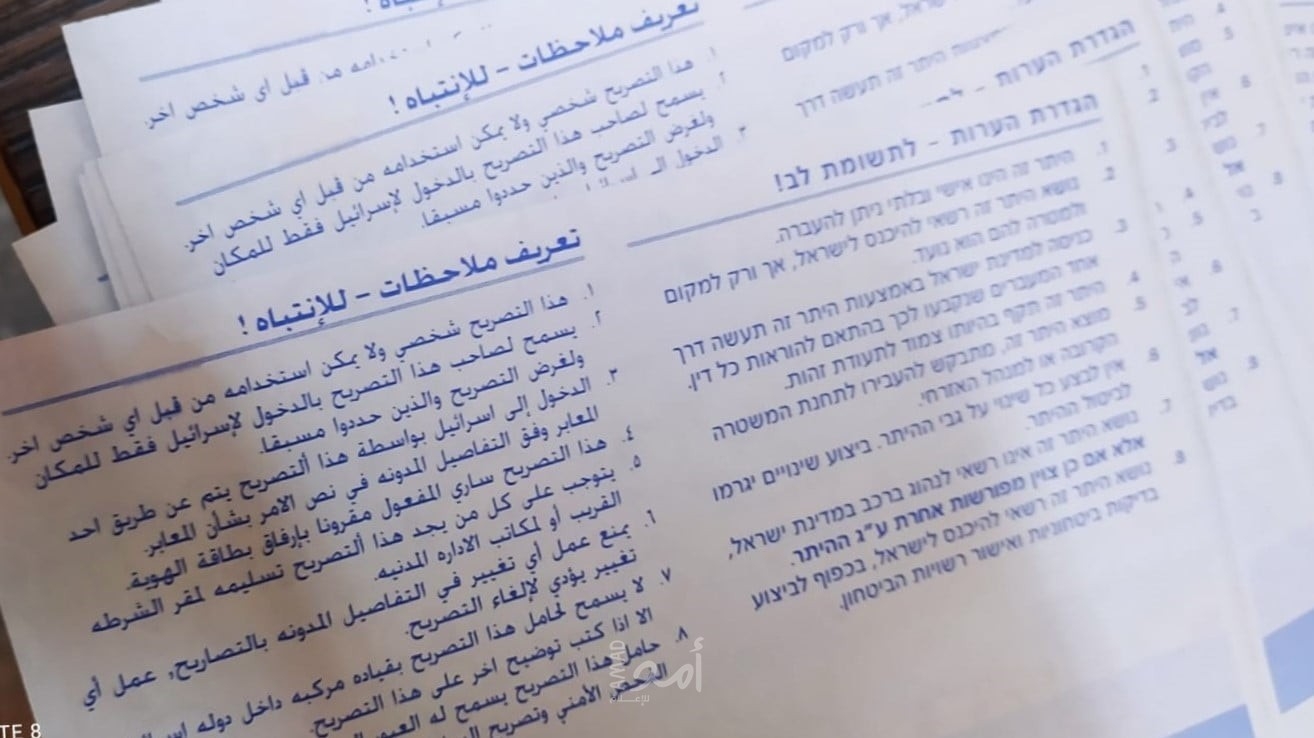 تعريف ملاحظات - للإنتباه !
١. هذا التصريح شخصي ولا يمكن استخدامه من قبل اي شخص اخر.
٢. يسمح لصاحب هذا التصريح بالدخول لإسرائيل فقط للمكان
ولغرض التصريح والذين حددوا مسبقا.
٣. الدخول إلى اسرائيل بواسطة هذا ألتصريح يتم عن طريق احد
المعابر وفق التفاصيل المدونه في نص الامر بشأن المعابر.
٤. هذا التصريح ساري المفعول مقرونا بإرفاق بطاقة الهوية.
٥. يتوجب على كل من يجد هذا ألتصريح تسليمه لمقر الشرطه
القريب أو لمكاتب الاداره المدنيه.
٦. يمنع عمل أي تغيير في التفاصيل المدونه بالتصاريح, عمل أي
تغيير يؤدي لإلغاء التصريح.
٧. لا يسمح لحامل هذا التصريح بقياده مركبه داخل دوله
الا اذا كتب توضيح اخر على هذا التصريح.
٨. حامل هذا التصريح يسمح له
الفحص الأمني وتصريح
הגדרת הערות - לתשומת לב!
1. היתר זה הינו אישי ובלתי ניתן להעברה.
2. נושא היתר זה רשאי להיכנס לישראל, אך ורק למקום
ולמטרה להם הוא נועד.
3. כניסה למדינת ישראל באמצעות היתר זה תעשה דרך
אחד המעברים שנקבעו לכך בהתאם להוראות כל דין.
4. היתר זה תקף בהיותו צמוד לתעודת זהות.
5. מוצא היתר זה, מתבקש להעבירו לתחנת המשטרה
הקרובה או למנהל האזרחי.
6. אין לבצע כל שינוי על גבי ההיתר. ביצוע שינויים יגרמו
לביטול ההיתר.
7. נושא היתר זה אינו רשאי לנהוג ברכב במדינת ישראל,
אלא אם כן צוין מפורשות אחרת ע"ג ההיתר.
8. נושא היתר זה רשאי להיכנס לישראל, בכפוף לביצוע
בדיקות ביטחוניות ואישור רשויות הביטחון.
تعريف ملاحظات - للإنتباه !
١. هذا التصريح شخصي ولا يمكن استخدامه من قبل أي شخص اخر.
٢. يسمح لصاحب هذا التصريح بالدخول لإسرائيل فقط للمكان
ولغرض التصريح والذين حددوا مسبقا.
٣. الدخول
הגדרת הערות
היתר זה תעשה דרך
ישראל, אך ורק למקום
من قبل اي شخص اخر.
أمد
للإعلام
AMAD
TE 8